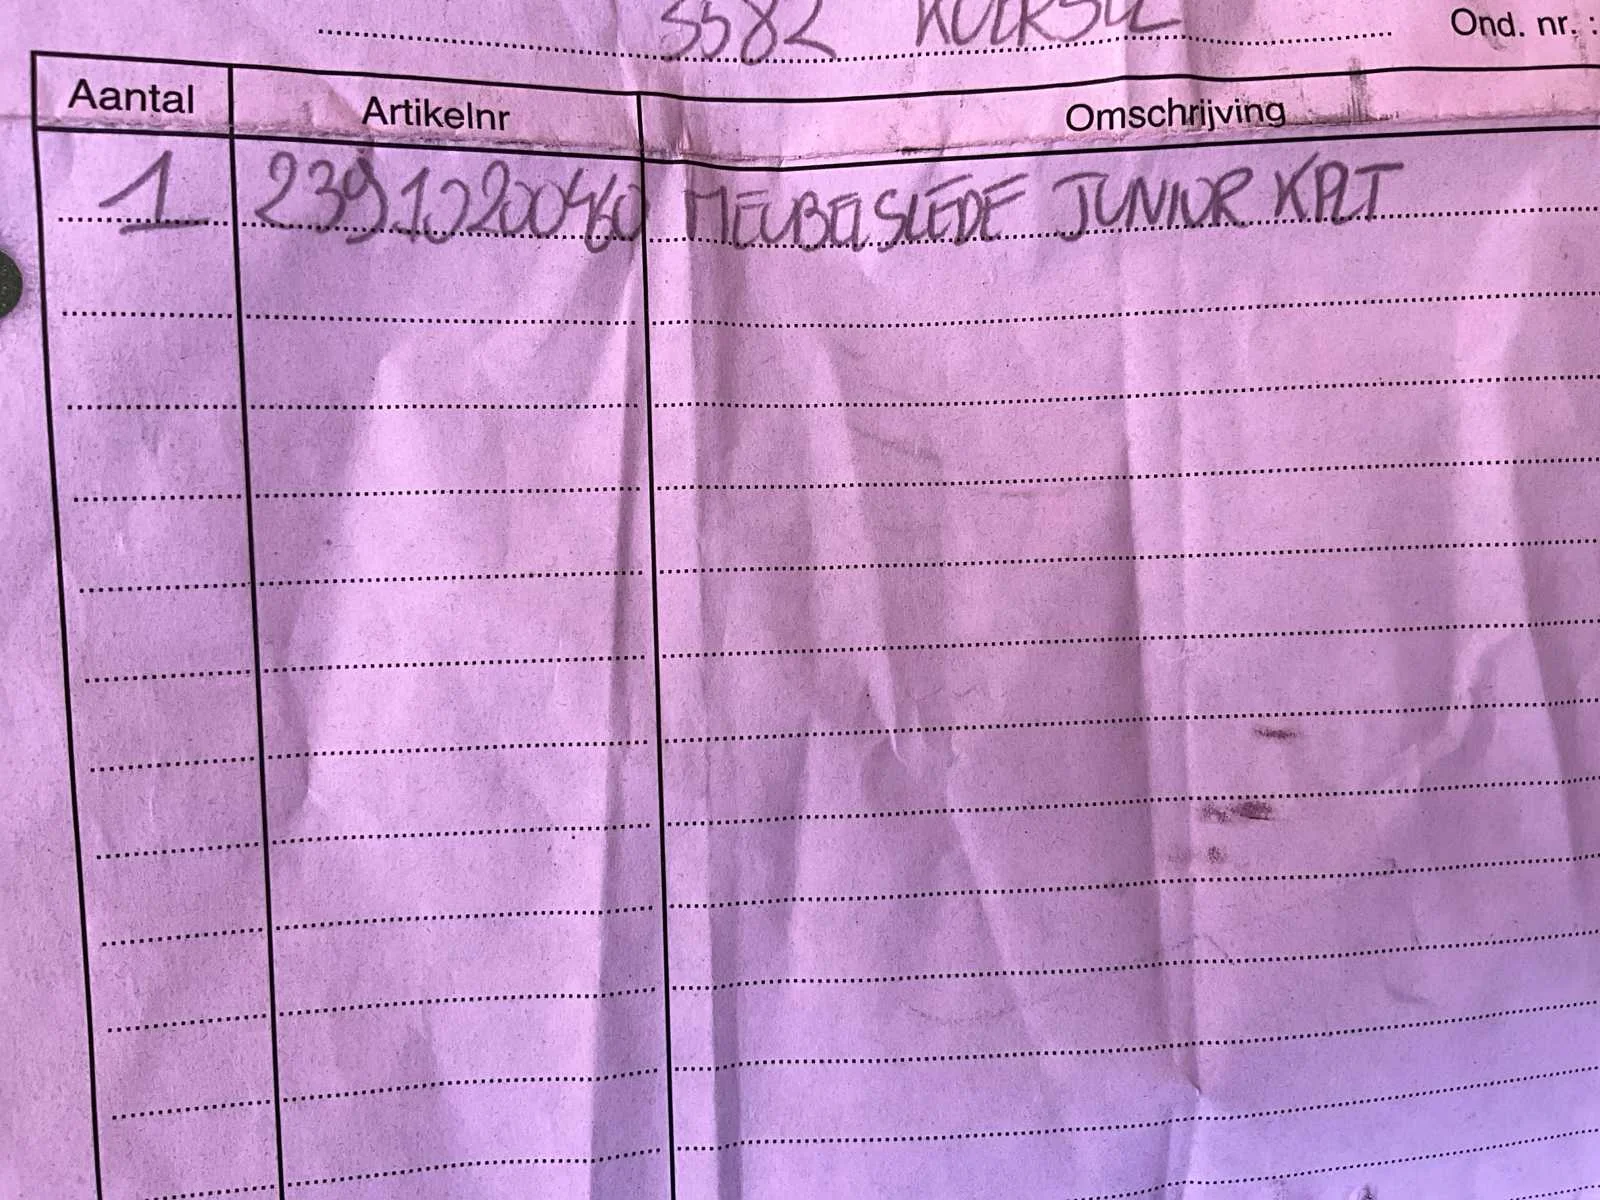 5582 Ond. nr. :
Aantal Artikelnr Omschrijving
1 23910200460 MEUBELSLEDE JUNIOR KPLT